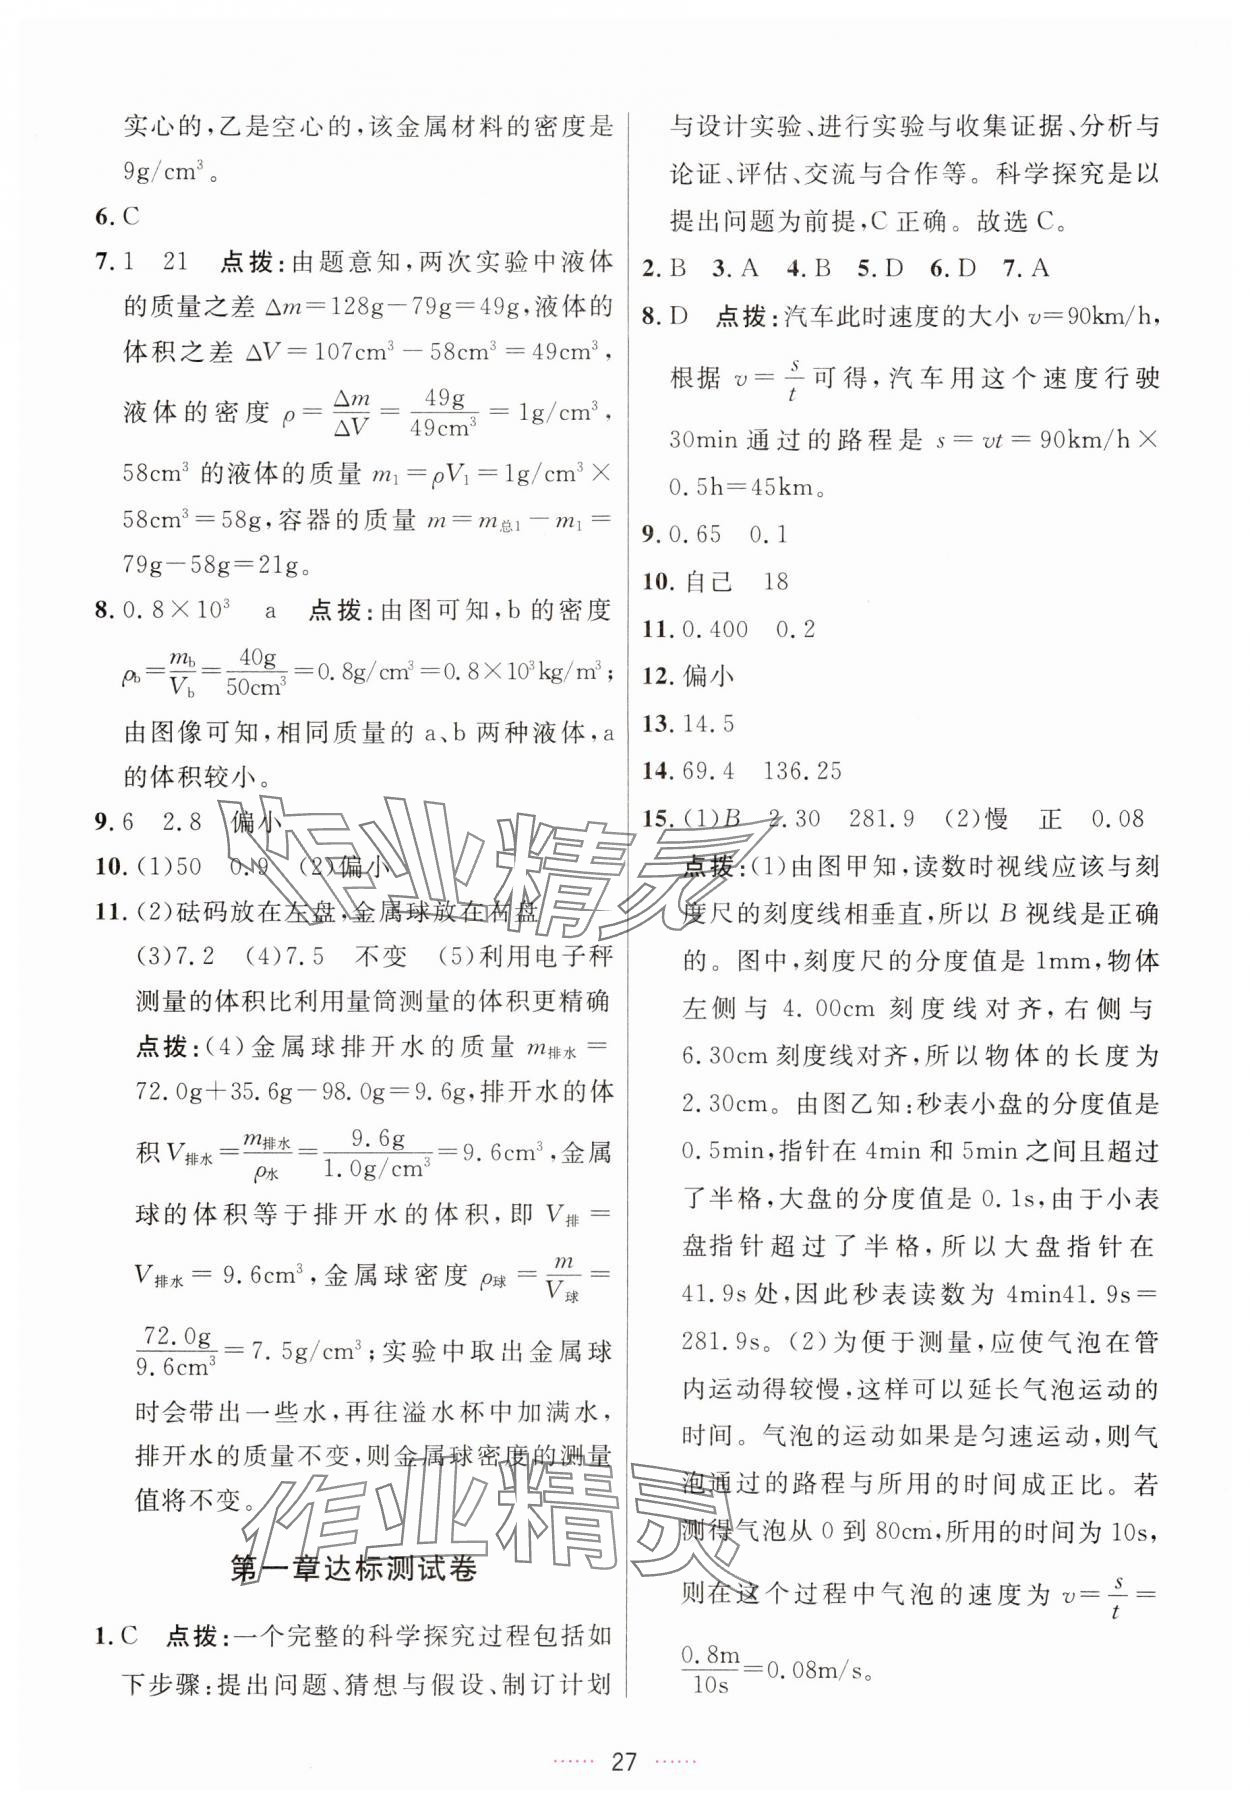 实心的,乙是空心的,该金属材料的密度是
9g/cm³。
6. C
7. 1 21 点拨:由题意知,两次实验中液体
的质量之差 Δm=128g-79g=49g,液体的
体积之差 ΔV=107cm³-58cm³=49cm³,
液体的密度 ρ=Δm/ΔV=49g/49cm³=1g/cm³,
58cm³ 的液体的质量 m₁=ρV₁=1g/cm³×
58cm³=58g,容器的质量 m=m总1-m₁=
79g-58g=21g。
8. 0.8×10³ a 点拨:由图可知,b 的密度
ρb=mb/Vb=40g/50cm³=0.8g/cm³=0.8×10³kg/m³;
由图像可知,相同质量的 a、b 两种液体,a
的体积较小。
9. 6 2.8 偏小
10. (1)50 0.9 (2)偏小
11. (2)砝码放在左盘,金属球放在右盘
(3)7.2 (4)7.5 不变 (5)利用电子秤
测量的体积比利用量筒测量的体积更精确
点拨:(4)金属球排开水的质量 m排水=
72.0g+35.6g-98.0g=9.6g,排开水的体
积 V排水=m排水/ρ水=9.6g/1.0g/cm³=9.6cm³,金属
球的体积等于排开水的体积,即 V排=
V排水=9.6cm³,金属球密度 ρ球=m/V球=
72.0g/9.6cm³=7.5g/cm³;实验中取出金属球
时会带出一些水,再往溢水杯中加满水,
排开水的质量不变,则金属球密度的测量
值将不变。
第一章达标测试卷
1. C 点拨:一个完整的科学探究过程包括如
下步骤:提出问题、猜想与假设、制订计划
与设计实验、进行实验与收集证据、分析与
论证、评估、交流与合作等。科学探究是以
提出问题为前提,C 正确。故选 C。
2. B 3. A 4. B 5. D 6. D 7. A
8. D 点拨:汽车此时速度的大小 v=90km/h,
根据 v=s/t 可得,汽车用这个速度行驶
30min 通过的路程是 s=vt=90km/h×
0.5h=45km。
9. 0.65 0.1
10. 自己 18
11. 0.400 0.2
12. 偏小
13. 14.5
14. 69.4 136.25
15. (1)B 2.30 281.9 (2)慢 正 0.08
点拨:(1)由图甲知,读数时视线应该与刻
度尺的刻度线相垂直,所以 B 视线是正确
的。图中,刻度尺的分度值是 1mm,物体
左侧与 4.00cm 刻度线对齐,右侧与
6.30cm 刻度线对齐,所以物体的长度为
2.30cm。由图乙知:秒表小盘的分度值是
0.5min,指针在 4min 和 5min 之间且超过
了半格,大盘的分度值是 0.1s,由于小表
盘指针超过了半格,所以大盘指针在
41.9s 处,因此秒表读数为 4min41.9s=
281.9s。(2)为便于测量,应使气泡在管
内运动得较慢,这样可以延长气泡运动的
时间。气泡的运动如果是匀速运动,则气
泡通过的路程与所用的时间成正比。若
测得气泡从 0 到 80cm,所用的时间为 10s,
则在这个过程中气泡的速度为 v=s/t=
0.8m/10s=0.08m/s。
作业精灵
作业精灵
27